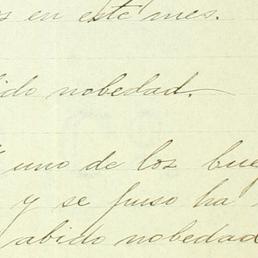 s en este mes.
ido nobedad.
uno de los bue
y se puso ha
abido nobedad